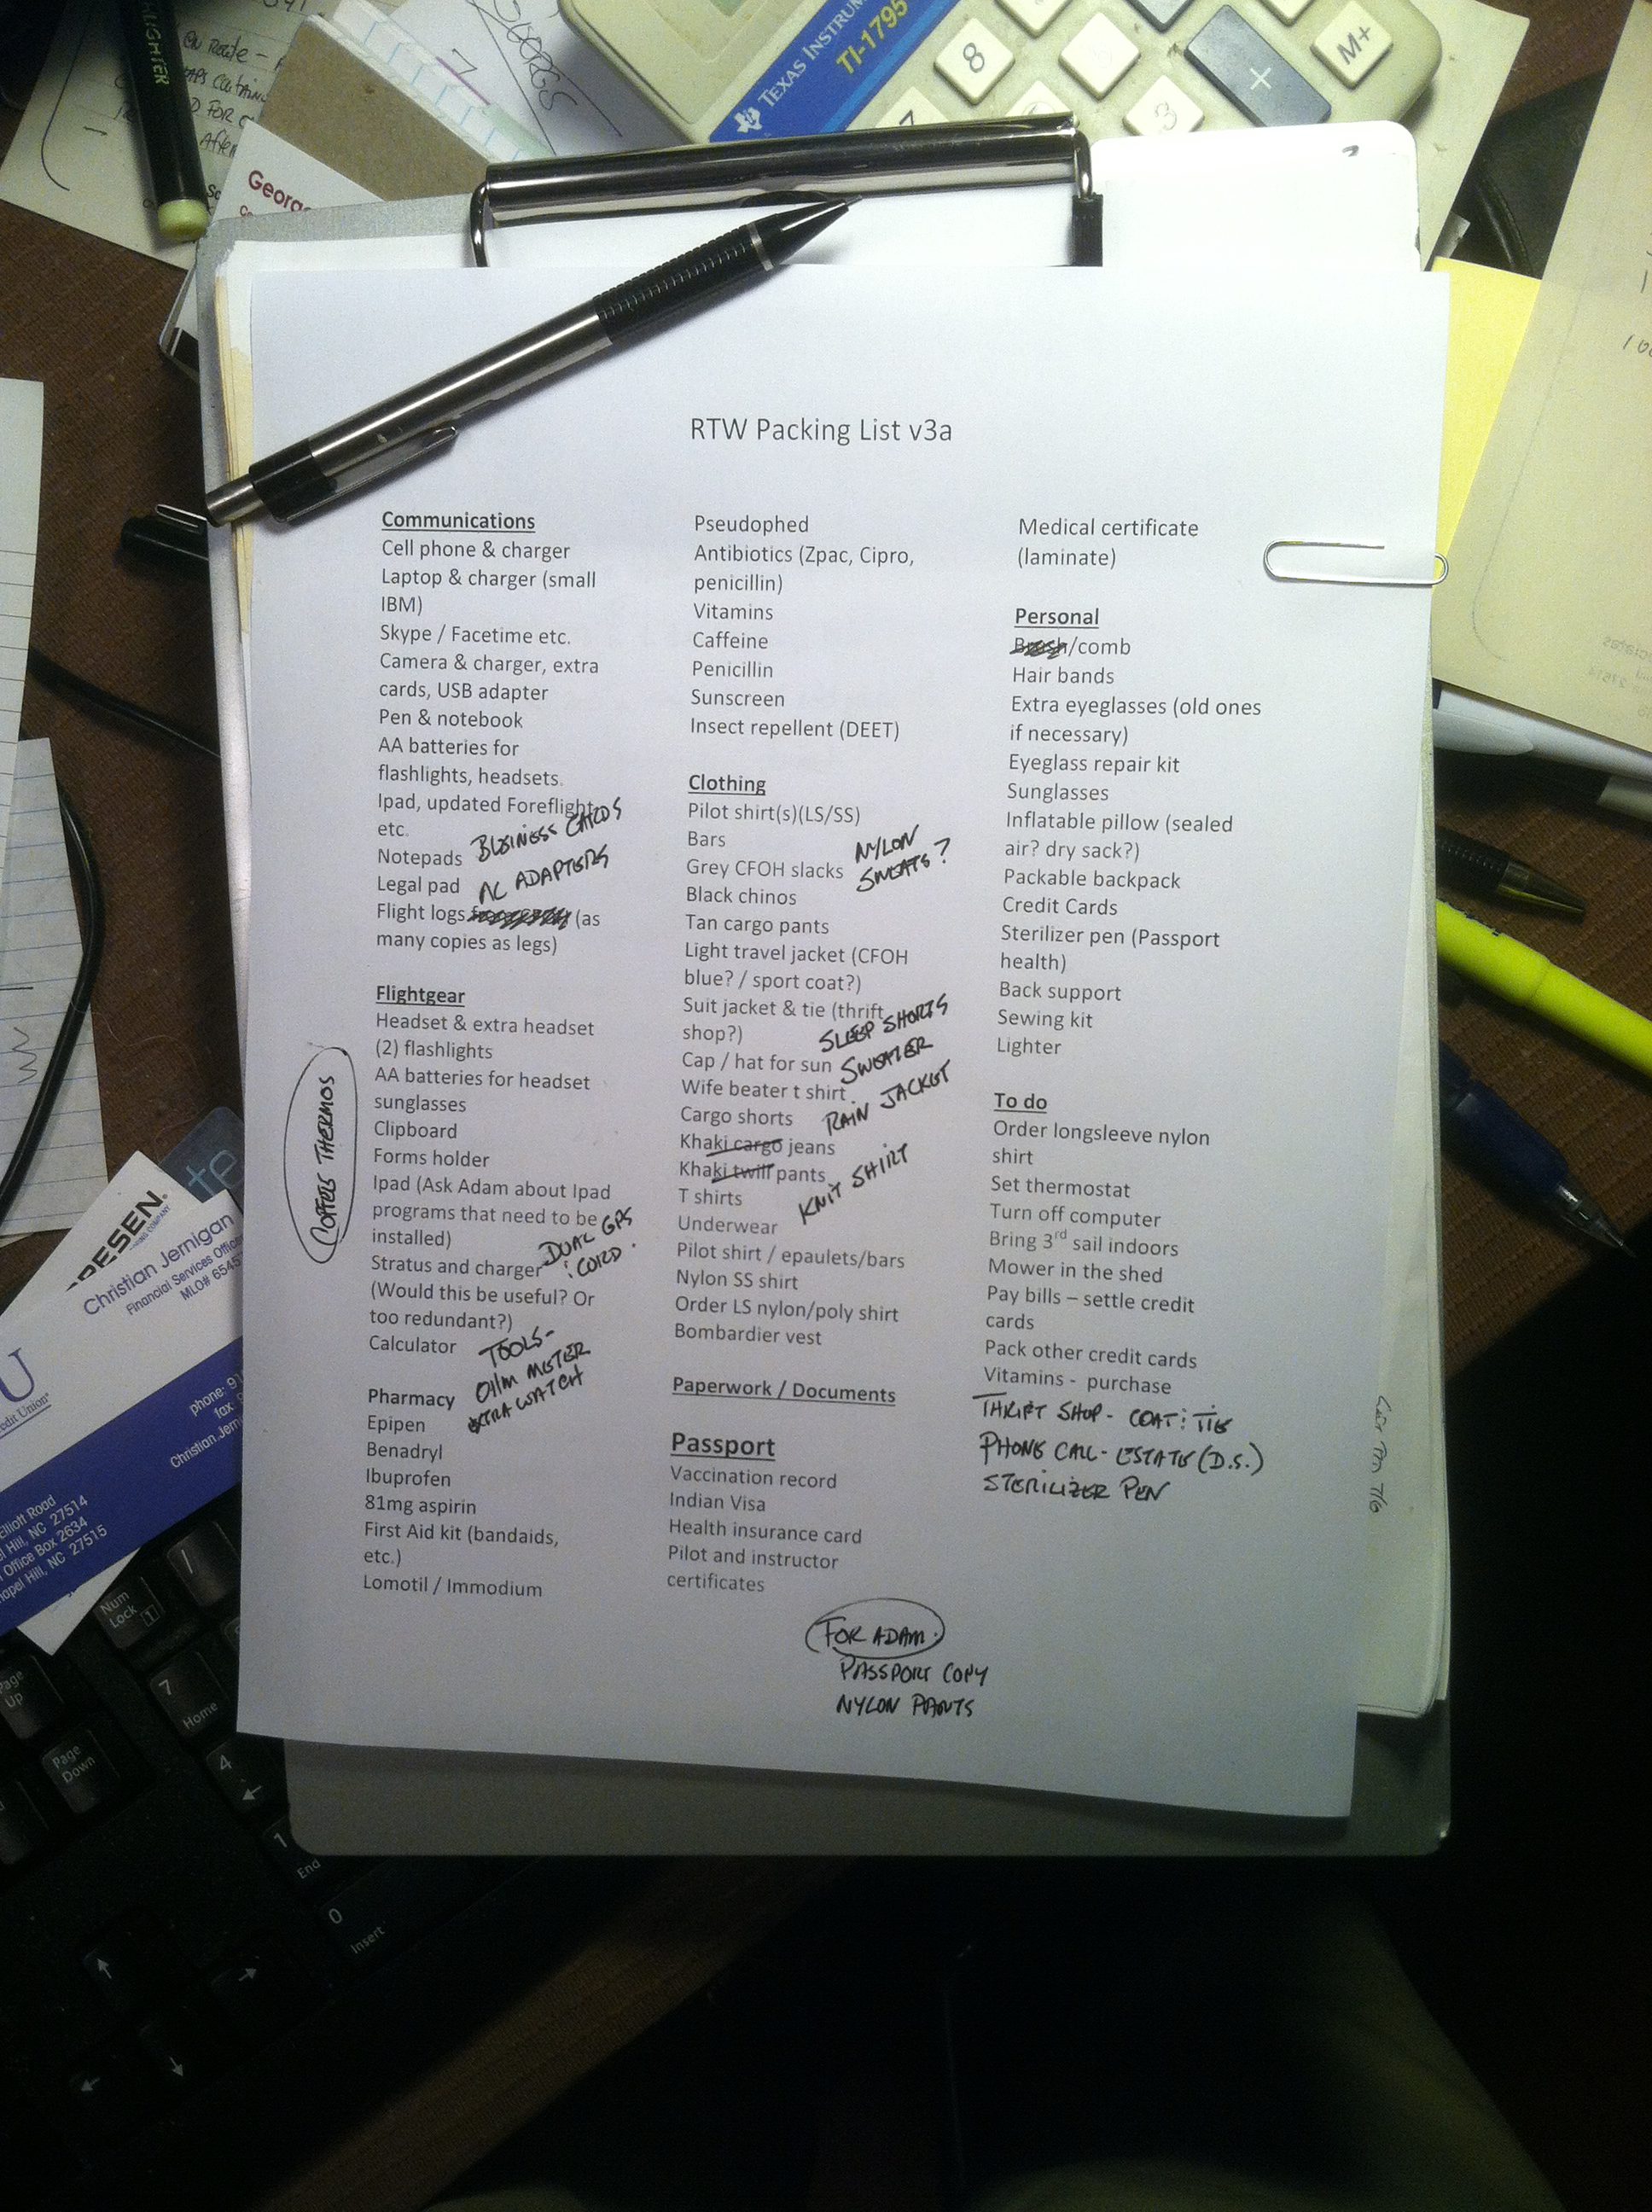 HLIGHTER
ON Route –
D FOR
After
Georg
7
TEXAS INSTRUM
TI-1795
8
7
3
+
M+
RTW Packing List v3a
Communications
Cell phone & charger
Laptop & charger (small
IBM)
Skype / Facetime etc.
Camera & charger, extra
cards, USB adapter
Pen & notebook
AA batteries for
flashlights, headsets.
Ipad, updated Foreflight
etc.
BUSINESS CARDS
Notepads
Legal pad
AC ADAPTERS
Flight logs (as
many copies as legs)
Flightgear
Headset & extra headset
(2) flashlights
AA batteries for headset
sunglasses
Clipboard
Forms holder
Ipad (Ask Adam about Ipad
programs that need to be
installed)
DUAL GPS
: CORD.
Stratus and charger
(Would this be useful? Or
too redundant?)
Calculator
TOOLS-
OHM METER
EXTRA WATCH
COFFEE THERMOS
Pharmacy
Epipen
Benadryl
Ibuprofen
81mg aspirin
First Aid kit (bandaids,
etc.)
Lomotil / Immodium
Pseudophed
Antibiotics (Zpac, Cipro,
penicillin)
Vitamins
Caffeine
Penicillin
Sunscreen
Insect repellent (DEET)
Clothing
Pilot shirt(s)(LS/SS)
Bars
Grey CFOH slacks
NYLON
SWEATS?
Black chinos
Tan cargo pants
Light travel jacket (CFOH
blue? / sport coat?)
Suit jacket & tie (thrift
shop?)
SLEEP SHORTS
Cap / hat for sun
SWEATER
Wife beater t shirt
RAIN JACKET
Cargo shorts
Khaki cargo jeans
Khaki twill pants
KNIT SHIRT
T shirts
Underwear
Pilot shirt / epaulets/bars
Nylon SS shirt
Order LS nylon/poly shirt
Bombardier vest
Paperwork / Documents
Passport
Vaccination record
Indian Visa
Health insurance card
Pilot and instructor
certificates
FOR ADAM.
PASSPORT COPY
NYLON PANTS
Medical certificate
(laminate)
Personal
Brush/comb
Hair bands
Extra eyeglasses (old ones
if necessary)
Eyeglass repair kit
Sunglasses
Inflatable pillow (sealed
air? dry sack?)
Packable backpack
Credit Cards
Sterilizer pen (Passport
health)
Back support
Sewing kit
Lighter
To do
Order longsleeve nylon
shirt
Set thermostat
Turn off computer
Bring 3rd sail indoors
Mower in the shed
Pay bills – settle credit
cards
Pack other credit cards
Vitamins - purchase
THRIFT SHOP - COAT : TIE
PHONE CALL - ESTATE (D.S.)
STERILIZER PEN
te
RESEN.
Christian Jernigan
Financial Services Office
MLO# 6545
U
edit Union
phone: 91
fax: 9
Christian.Jern
Elliott Road
el Hill, NC 27514
Office Box 2634
hapel Hill, NC 27515
Num
Lock
1
/
Page
Up
7
Home
Page
Down
4
1
End
0
Insert